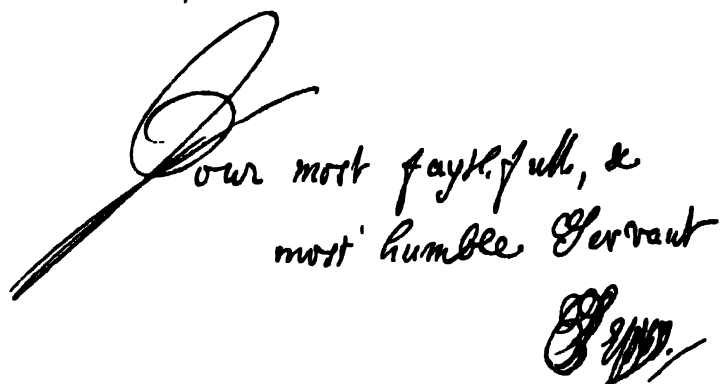 Your most faythfull, &
most humble Servant
SPepys.